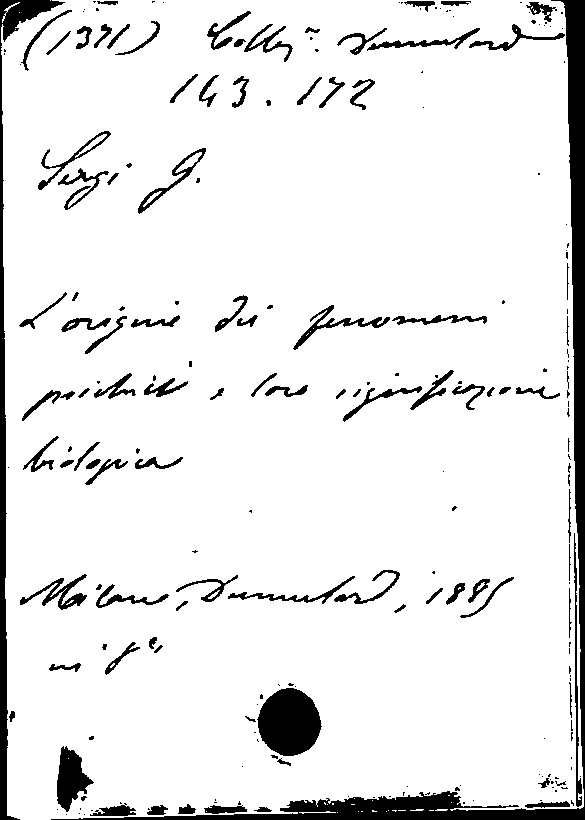 (1371) Collez.ne Dumolard
143.172
Sergi G.
L'origine dei fenomeni
psichici e loro significazione
biologica
Milano, Dumolard, 1885
in 8°